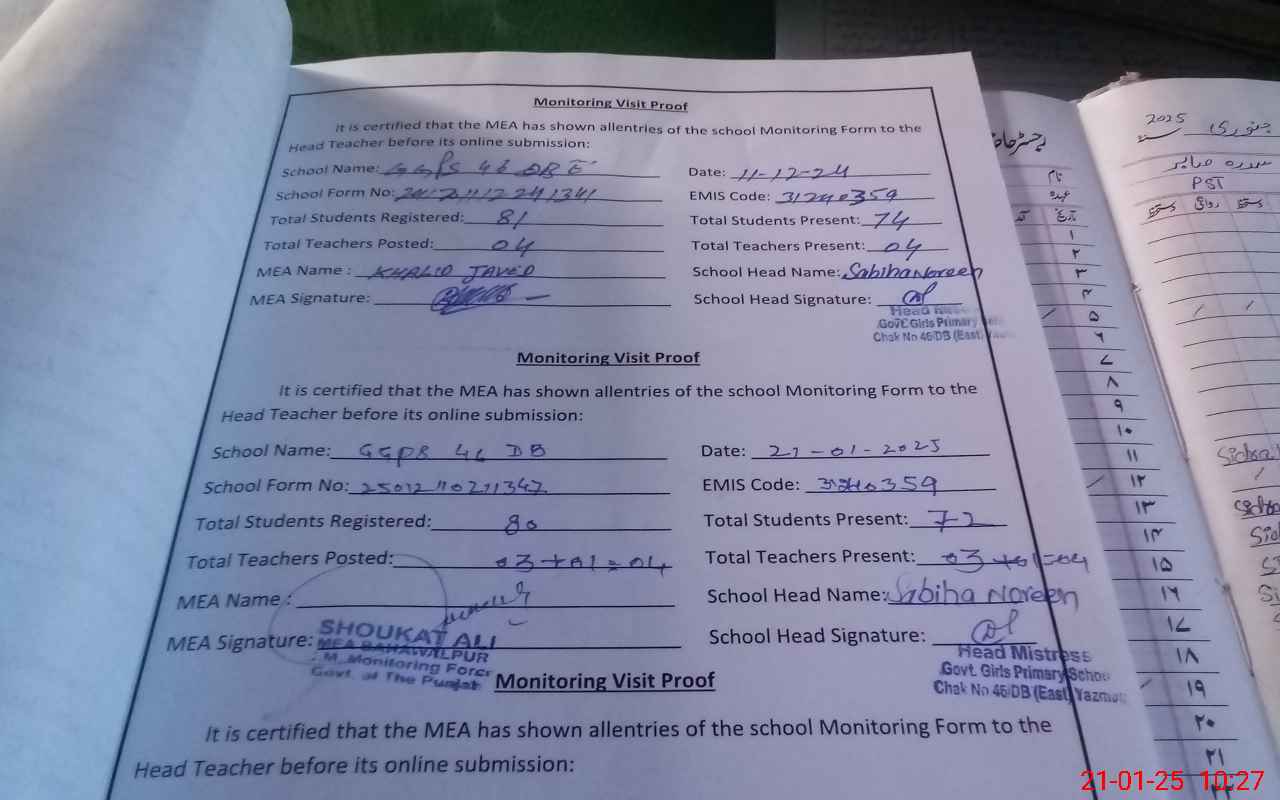 Monitoring Visit Proof
It is certified that the MEA has shown allentries of the school Monitoring Form to the
Head Teacher before its online submission:
School Name: GGPS 46 DB E Date: 11-12-24
School Form No: EMIS Code: 31240359
Total Students Registered: 81 Total Students Present: 74
Total Teachers Posted: 04 Total Teachers Present: 04
MEA Name : KHALID JAVED School Head Name: Sabiha Noreen
MEA Signature: School Head Signature:
Head
Govt. Girls Primary
Chak No 46/DB (East)
Monitoring Visit Proof
It is certified that the MEA has shown allentries of the school Monitoring Form to the
Head Teacher before its online submission:
School Name: GGPS 46 DB Date: 21-01-2025
School Form No: EMIS Code: 31240359
Total Students Registered: 80 Total Students Present: 72
Total Teachers Posted: 03+01=04 Total Teachers Present: 03+01=04
MEA Name : School Head Name: Sabiha Noreen
MEA Signature: School Head Signature:
SHOUKAT ALI
MEA BAHAWALPUR
Monitoring Force
Govt. of The Punjab
Head Mistress
Govt. Girls Primary School
Chak No 46/DB (East) Yazman
Monitoring Visit Proof
It is certified that the MEA has shown allentries of the school Monitoring Form to the
Head Teacher before its online submission:
جنوری 2025
PST
نام
عہدہ
۱
۲
۳
۴
۵
۶
۷
۸
۹
۱۰
۱۱
۱۲
۱۳
۱۴
۱۵
۱۶
۱۷
۱۸
۱۹
۲۰
۲۱
۲۲
21-01-25 10:27